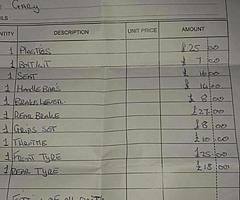 Gary
QUANTITY DESCRIPTION UNIT PRICE AMOUNT
1 PLASTICS £25 00
1 BOLT KIT £ 7 00
1 SEAT £ 16 00
1 HANDLE BARS £ 14 00
1 BRAKE LEVER £ 8 00
1 REAR BRAKE £27 00
1 GRIPS SET £8 00
1 THROTTLE £10 00
1 FRONT TYRE £25 00
1 REAR TYRE £18 00